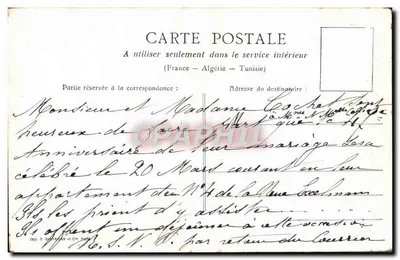 CARTE POSTALE
A utiliser seulement dans le service intérieur
(France - Algérie - Tunisie)
Partie réservée à la correspondance : Adresse du destinataire :
Monsieur et Madame sont
heureux de faire part que le
Anniversaire de leur mariage sera
célébré le 20 Mars courant en leur
appartement du N° 4 de la Rue Exelmans
Ils les prient d'y assister
Ils offrent un déjeûner à cette occasion
R.S.V.P. par retour du Courrier